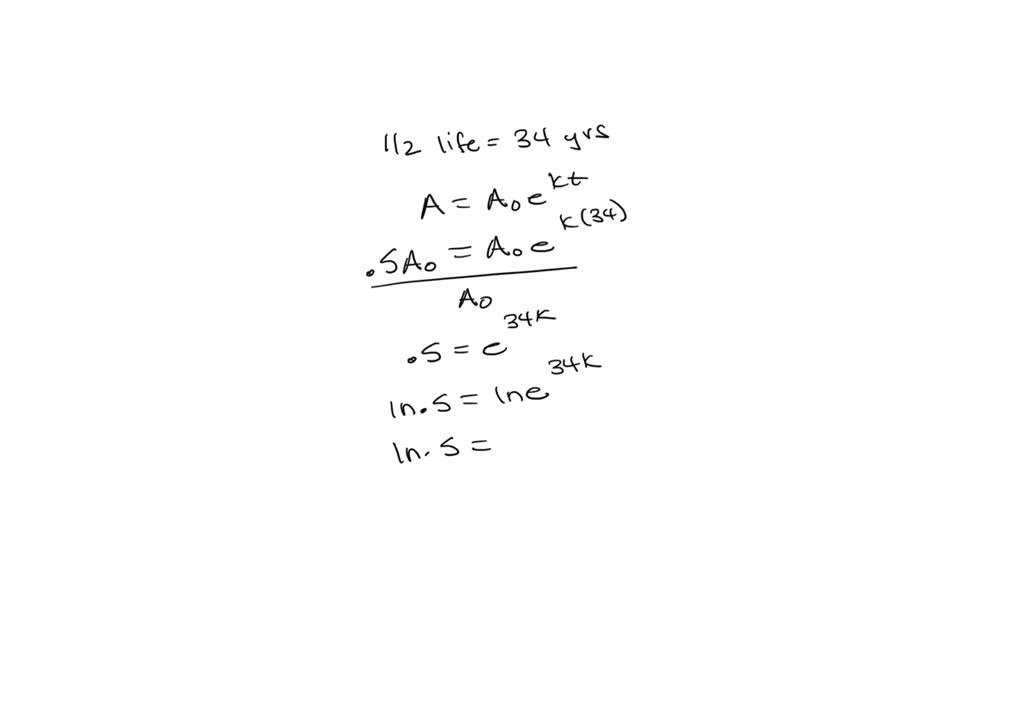 1/2 life = 34 yrs
A = A₀e^kt
.5A₀ = A₀e^k(34)
A₀
.5 = e^34k
ln .5 = lne^34k
ln .5 =